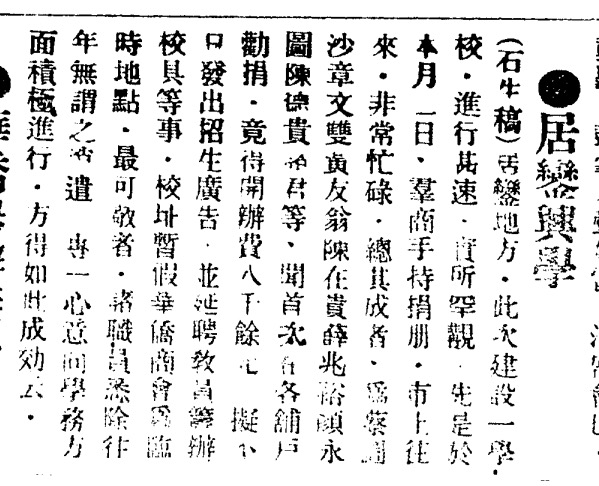 ●居鑾興學
（石生稿）居鑾地方・此次建設一學
校・進行甚速・實所罕觀・先是於
本月一日・羣商手持捐册・市上往
來・非常忙碌・總其成者・爲蔡
沙章文雙黃友翁陳在貴薛兆裕顔永
圖陳德貴 君等・聞首次在各舖戶
勸捐・竟得開辦費八千餘 擬
日發出招生廣告・並延聘敎員籌辦
校具等事・校址暫假華僑商會爲臨
時地點・最可敬者・諸職員悉除往
年無謂之 遣 專一心意向學務方
面積極進行・方得如此成効云・